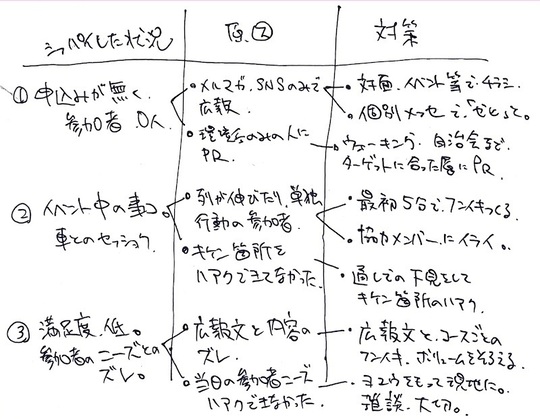 シッパイした状況
原因
対策
① 申込みが無く、
参加者 0人。
・メルマガ、SNSのみで
広報。
・環境系のみの人に
PR。
・対面、イベント等でチラシ
・個別メッセで、
・ウォーキング、自治会など、
ターゲットに合った層にPR
② イベント中の事コ。
車とのセッショク。
・列が伸びたり、単独
行動の参加者。
・キケン箇所を
ハアクできてなかった。
・最初5分で、フンイキつくる。
・協力メンバーにイライ。
・通しての下見をして
キケン箇所のハアク。
③ 満足度、低。
参加者のニーズとの
ズレ。
・広報文と内容の
ズレ。
・当日の参加者ニーズ
ハアクできなかった。
・広報文と、コースごとの
フンイキ、ボリュームをそろえる。
・ヨユウをもって現地に。
雑談、大切。